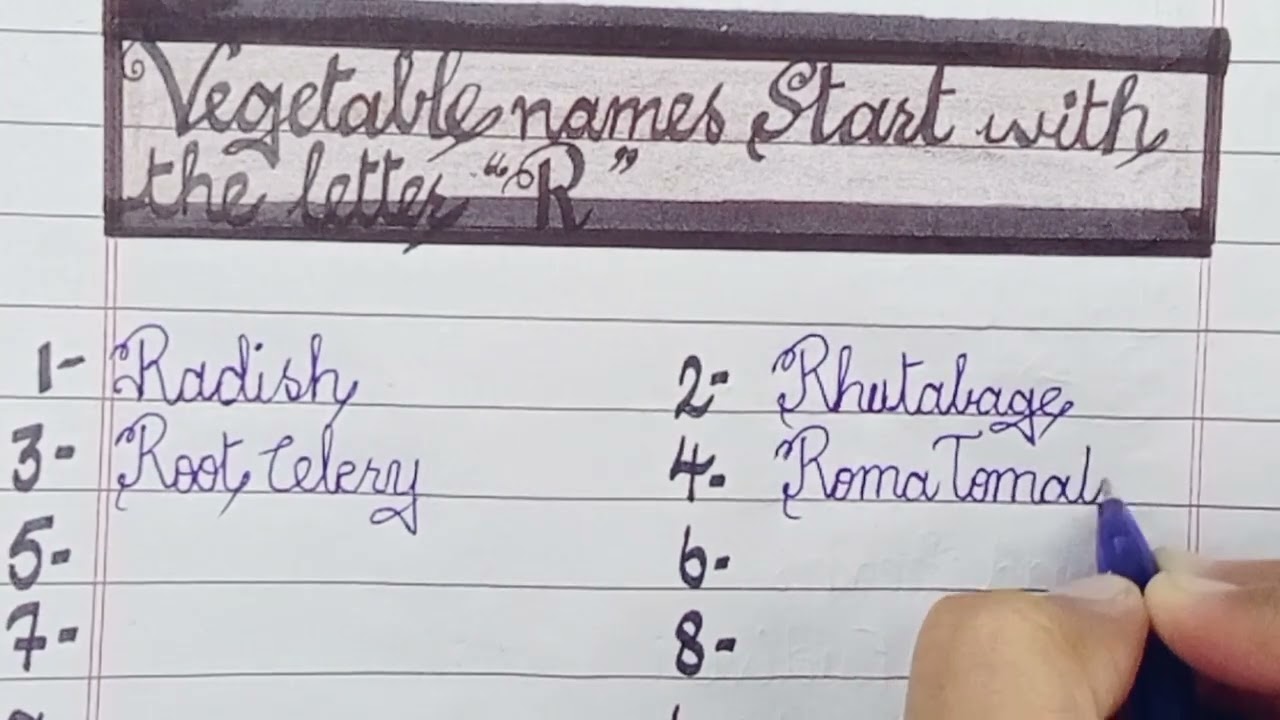 Vegetable names Start with
the letter "R"
1- Radish 2- Rhutabage
3- Root Celery 4- Roma Tomat
5- 6-
7- 8-